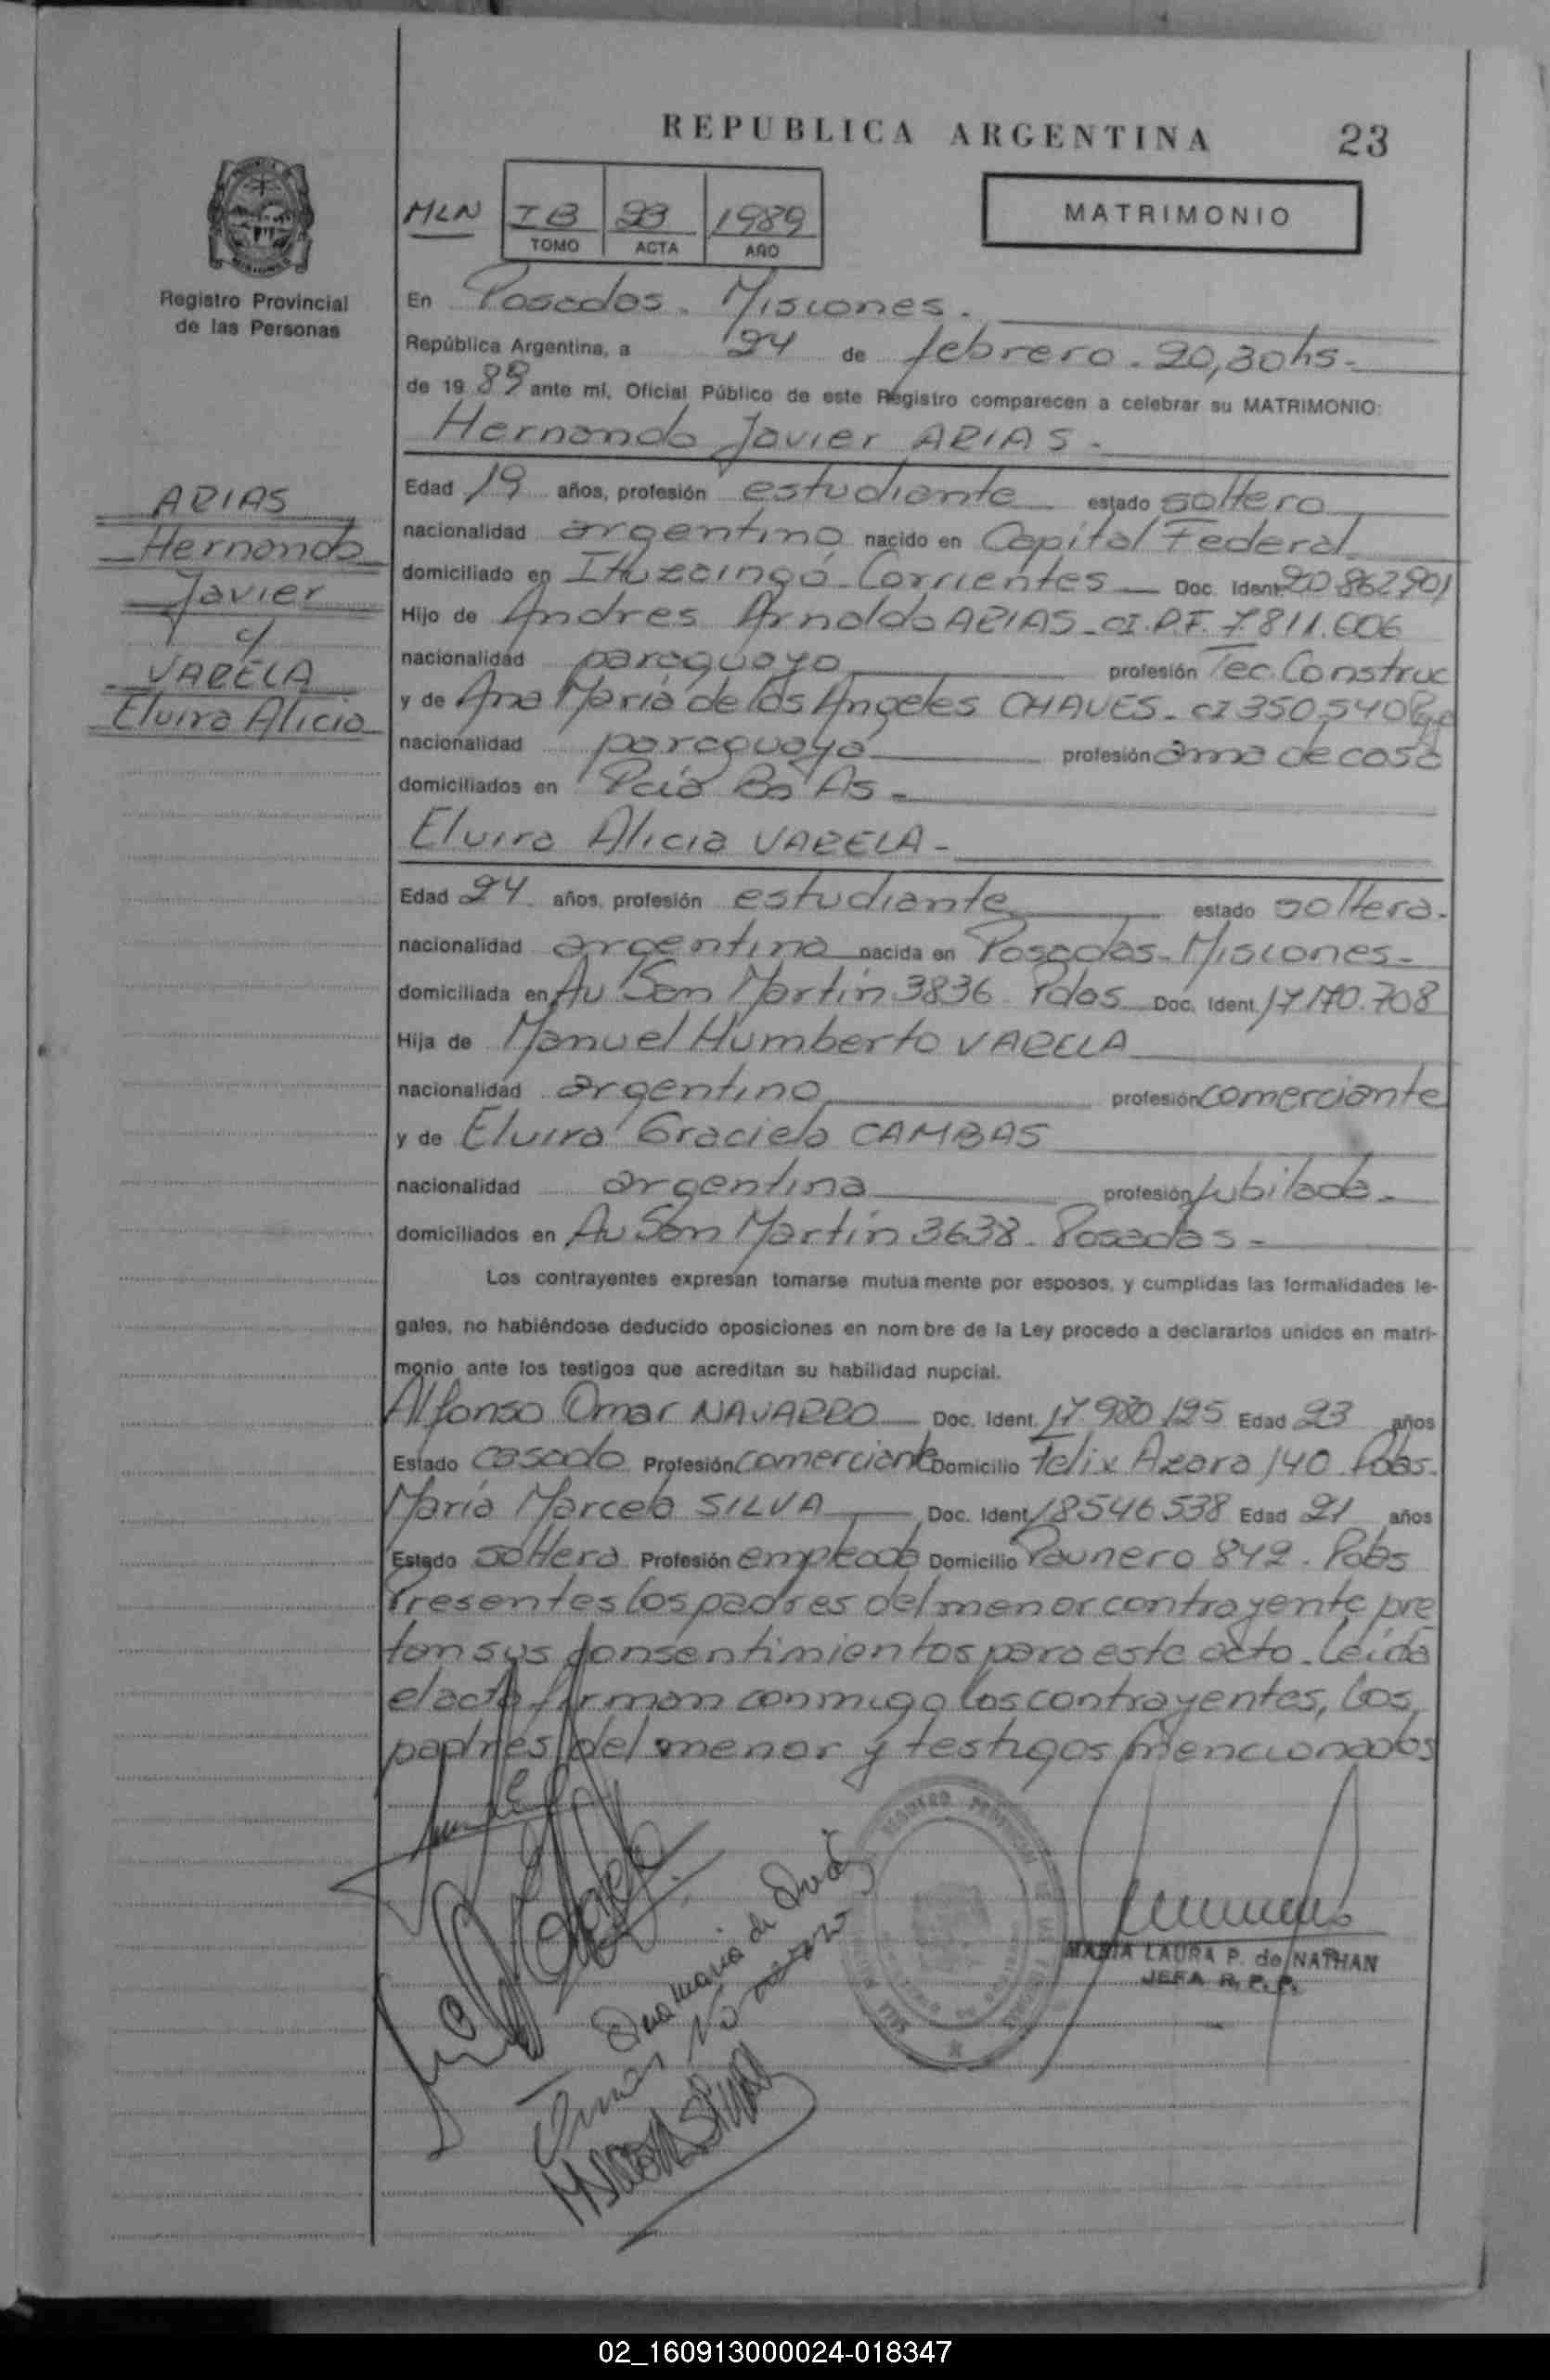 REPUBLICA ARGENTINA 23
MLN I B 23 1989
TOMO ACTA AÑO
MATRIMONIO
Registro Provincial
de las Personas
En Posadas. Misiones.
República Argentina, a 24 de febrero. 20,30hs-
de 1989 ante mí, Oficial Público de este Registro comparecen a celebrar su MATRIMONIO:
Hernando Javier ARIAS-
ARIAS
Hernando
Javier
c/
VARELA
Elvira Alicia
Edad 19 años, profesión estudiante estado soltero
nacionalidad argentino nacido en Capital Federal
domiciliado en Ituzaingó-Corrientes Doc. Ident. 20.862901
Hijo de Andres Arnoldo ARIAS-CI.P.F. 7811.006
nacionalidad paraguayo profesión Tec. Construc
y de Ana María de los Angeles CHAVES-CI 350.540
nacionalidad paraguaya profesión ama de casa
domiciliados en Pcia Bs As-
Elvira Alicia VARELA-
Edad 24 años, profesión estudiante estado soltera.
nacionalidad argentina nacida en Posadas-Misiones-
domiciliada en Av San Martín 3836 Pdas Doc. Ident. 17170.708
Hija de Manuel Humberto VARELA
nacionalidad argentino profesión comerciante
y de Elvira Graciela CAMBAS
nacionalidad argentina profesión jubilada-
domiciliados en Av San Martín 3638-Posadas-
Los contrayentes expresan tomarse mutua mente por esposos, y cumplidas las formalidades le-
gales, no habiéndose deducido oposiciones en nom bre de la Ley procedo a declararlos unidos en matri-
monio ante los testigos que acreditan su habilidad nupcial.
Alfonso Omar NAVARRO Doc. Ident. 17 980 125 Edad 23 años
Estado casado Profesión comerciante Domicilio Felix Azara 140 Pdas.
María Marcela SILVA Doc. Ident. 18546538 Edad 21 años
Estado soltera Profesión empleada Domicilio Paunero 842. Pdas
Presentes los padres del menor contrayente pre
tan sus consentimientos para este acto. Leída
el acta firman conmigo los contrayentes, los
padres del menor y testigos mencionados
MARIA LAURA P. de NATHAN
JEFA R.P.P.
02_160913000024-018347